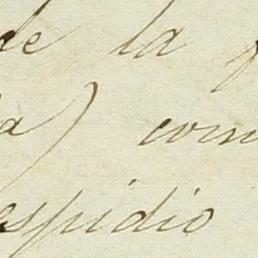 de la
a) com
espidio